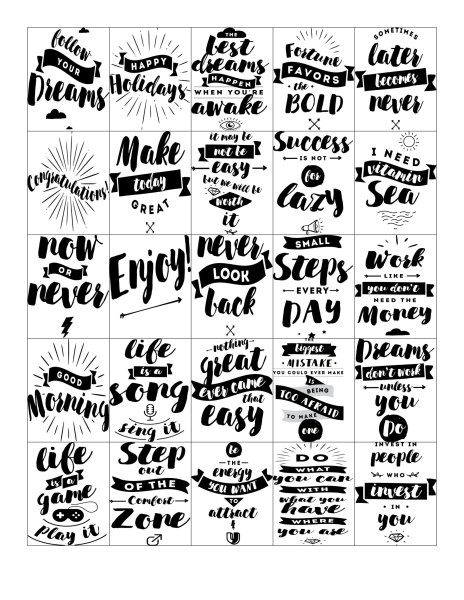 follow
YOUR
Dreams
HAPPY
Holidays
THE
best
dreams
HAPPEN
WHEN YOU'RE
awake
Fortune
FAVORS
the
BOLD
SOMETIMES
later
becomes
never
Congratulations!
Make
today
GREAT
it may be
not be
easy
but we will be
worth
it
Success
IS NOT
for
lazy
I NEED
vitamin
Sea
now
OR
never
Enjoy!
never
LOOK
back
SMALL
Steps
EVERY
DAY
Work
LIKE
you don't
NEED THE
Money
GOOD
Morning
life
is a
song
sing it
nothing
great
ever came
that
easy
THE
biggest
MISTAKE
YOU COULD EVER MAKE
IS
BEING
TOO AFRAID
TO MAKE
one
Dreams
don't work
unless
you
Do
life
is a
game
play it
Step
out
OF THE
Comfort
Zone
be
THE
energy
YOU WANT
TO
attract
DO
WHAT
you can
WITH
what you
have
WHERE
you are
INVEST IN
people
WHO
invest
IN
you